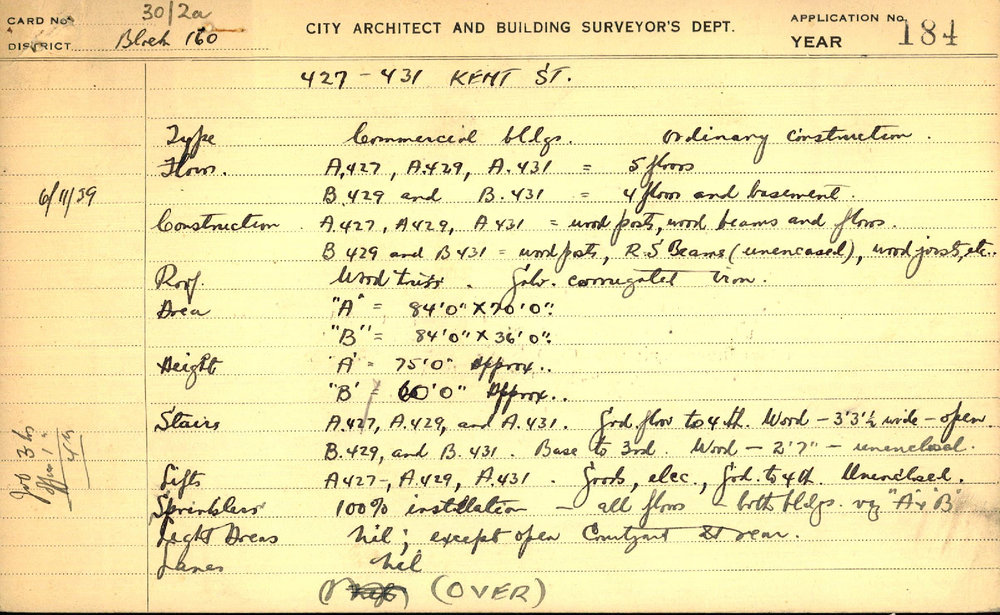 CARD No. 30/2a
CITY ARCHITECT AND BUILDING SURVEYOR'S DEPT.
APPLICATION No. 184
DISTRICT Block 160
YEAR
427 - 431 KENT ST.
Type Commercial bldgs. Ordinary construction.
Floors. A.427, A.429, A.431 = 5 floors
6/11/39 B.429 and B.431 = 4 floor and basement.
Construction. A.427, A.429, A.431 = wood posts, wood beams and floors.
B 429 and B 431 = wood posts, R.S Beams (unencased), wood joists, etc..
Roof. Wood truss. Galv. corrugated iron.
Area "A" = 84'0" X 70'0":
"B" = 84'0" X 36'0":
Height 'A' = 75'0" Approx..
"B' = 60'0" Approx..
Stairs A.427, A.429, and A.431. Grd. floor to 4th. Wood - 3'3½ wide - open
B.429, and B.431. Base to 3rd. Wood - 2'7" - unenclosed.
Lifts A427-, A.429, A.431. Goods, elec., Grd. to 4th. Unenclosed.
Sprinklers 100% installation - all floors - both bldgs. viz "A & B"
Light Areas Nil; except open Courtyard at rear.
Lanes Nil
(OVER)